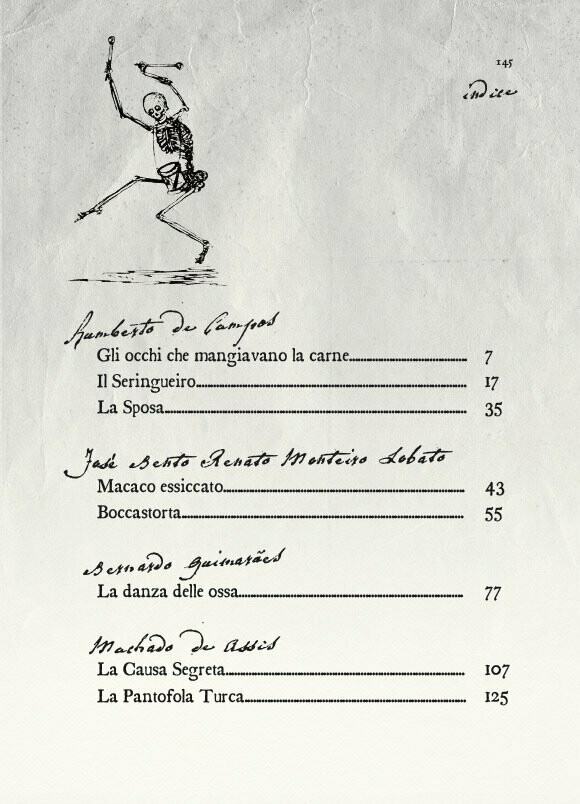 145
indice
Humberto de Campos
Gli occhi che mangiavano la carne 7
Il Seringueiro 17
La Sposa 35
José Bento Renato Monteiro Lobato
Macaco essiccato 43
Boccastorta 55
Bernardo Guimarães
La danza delle ossa 77
Machado de Assis
La Causa Segreta 107
La Pantofola Turca 125